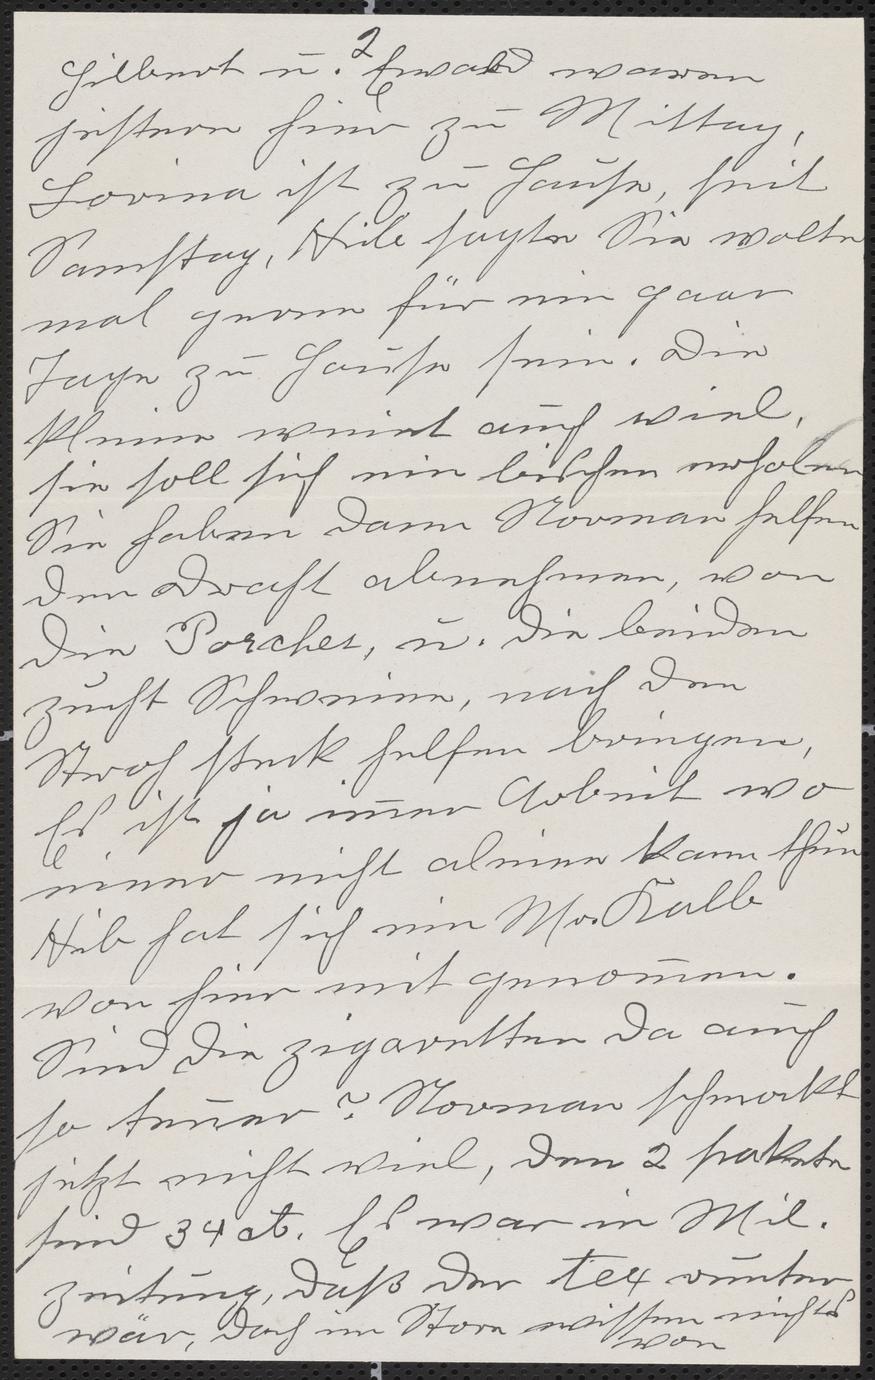 2
Gilbert u. Ewald waren
gestern hier zu Mittag,
Lorina ist zu Hause, seit
Samstag, Hib sagte Sie wolte
mal gerne für ein paar
Tage zu Hause sein. Die
Kleine weint auch viel,
sie soll sich ein bischen erholen
Sie haben dann Norman helfen
den Draht abnehmen, von
die Porches, u. die beiden
zucht Schweine, nach den
Stroh steck helfen bringen,
Es ist ja im̄er Arbeit wo
einer nicht aleine kann thun
Hib hat sich ein Mo. Kalb
von hier mit genom̄en.
Sind die zigaretten da auch
so teuer? Norman schmockt
jetzt nicht viel, den 2 pakete
sind 34 ct. Es war in Mil.
zeitung, daß der tex runter
wär, doch im Store wissen nichts
von